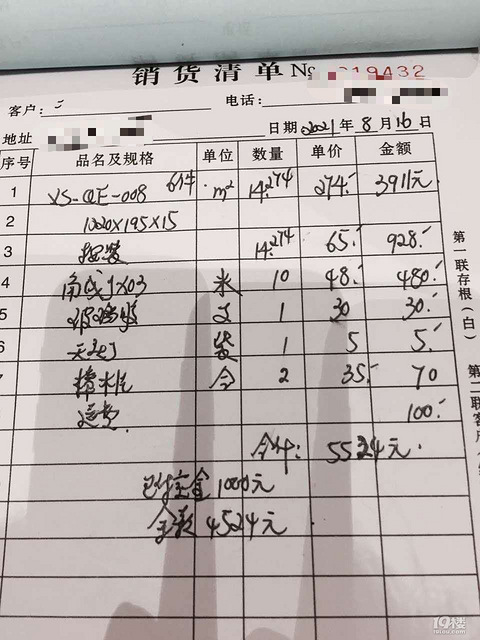 销货清单 № 019432
客户：
电话：
地址
日期 2021 年 8 月 16 日
序号 品名及规格 单位 数量 单价 金额
1 XS-QE-008 6件 m² 14.274 274.- 3911元
2 1220×195×15
3 安装 14.274 65.- 928.-
4 米 10 48.- 480.-
5 1 30 30.-
6 袋 1 5 5.-
个 2 35.- 70
运费 100.-
合计: 5524元.
已付定金1000元
余款4524元
第一联存根（白）
第二联客户
19楼
19lou.com